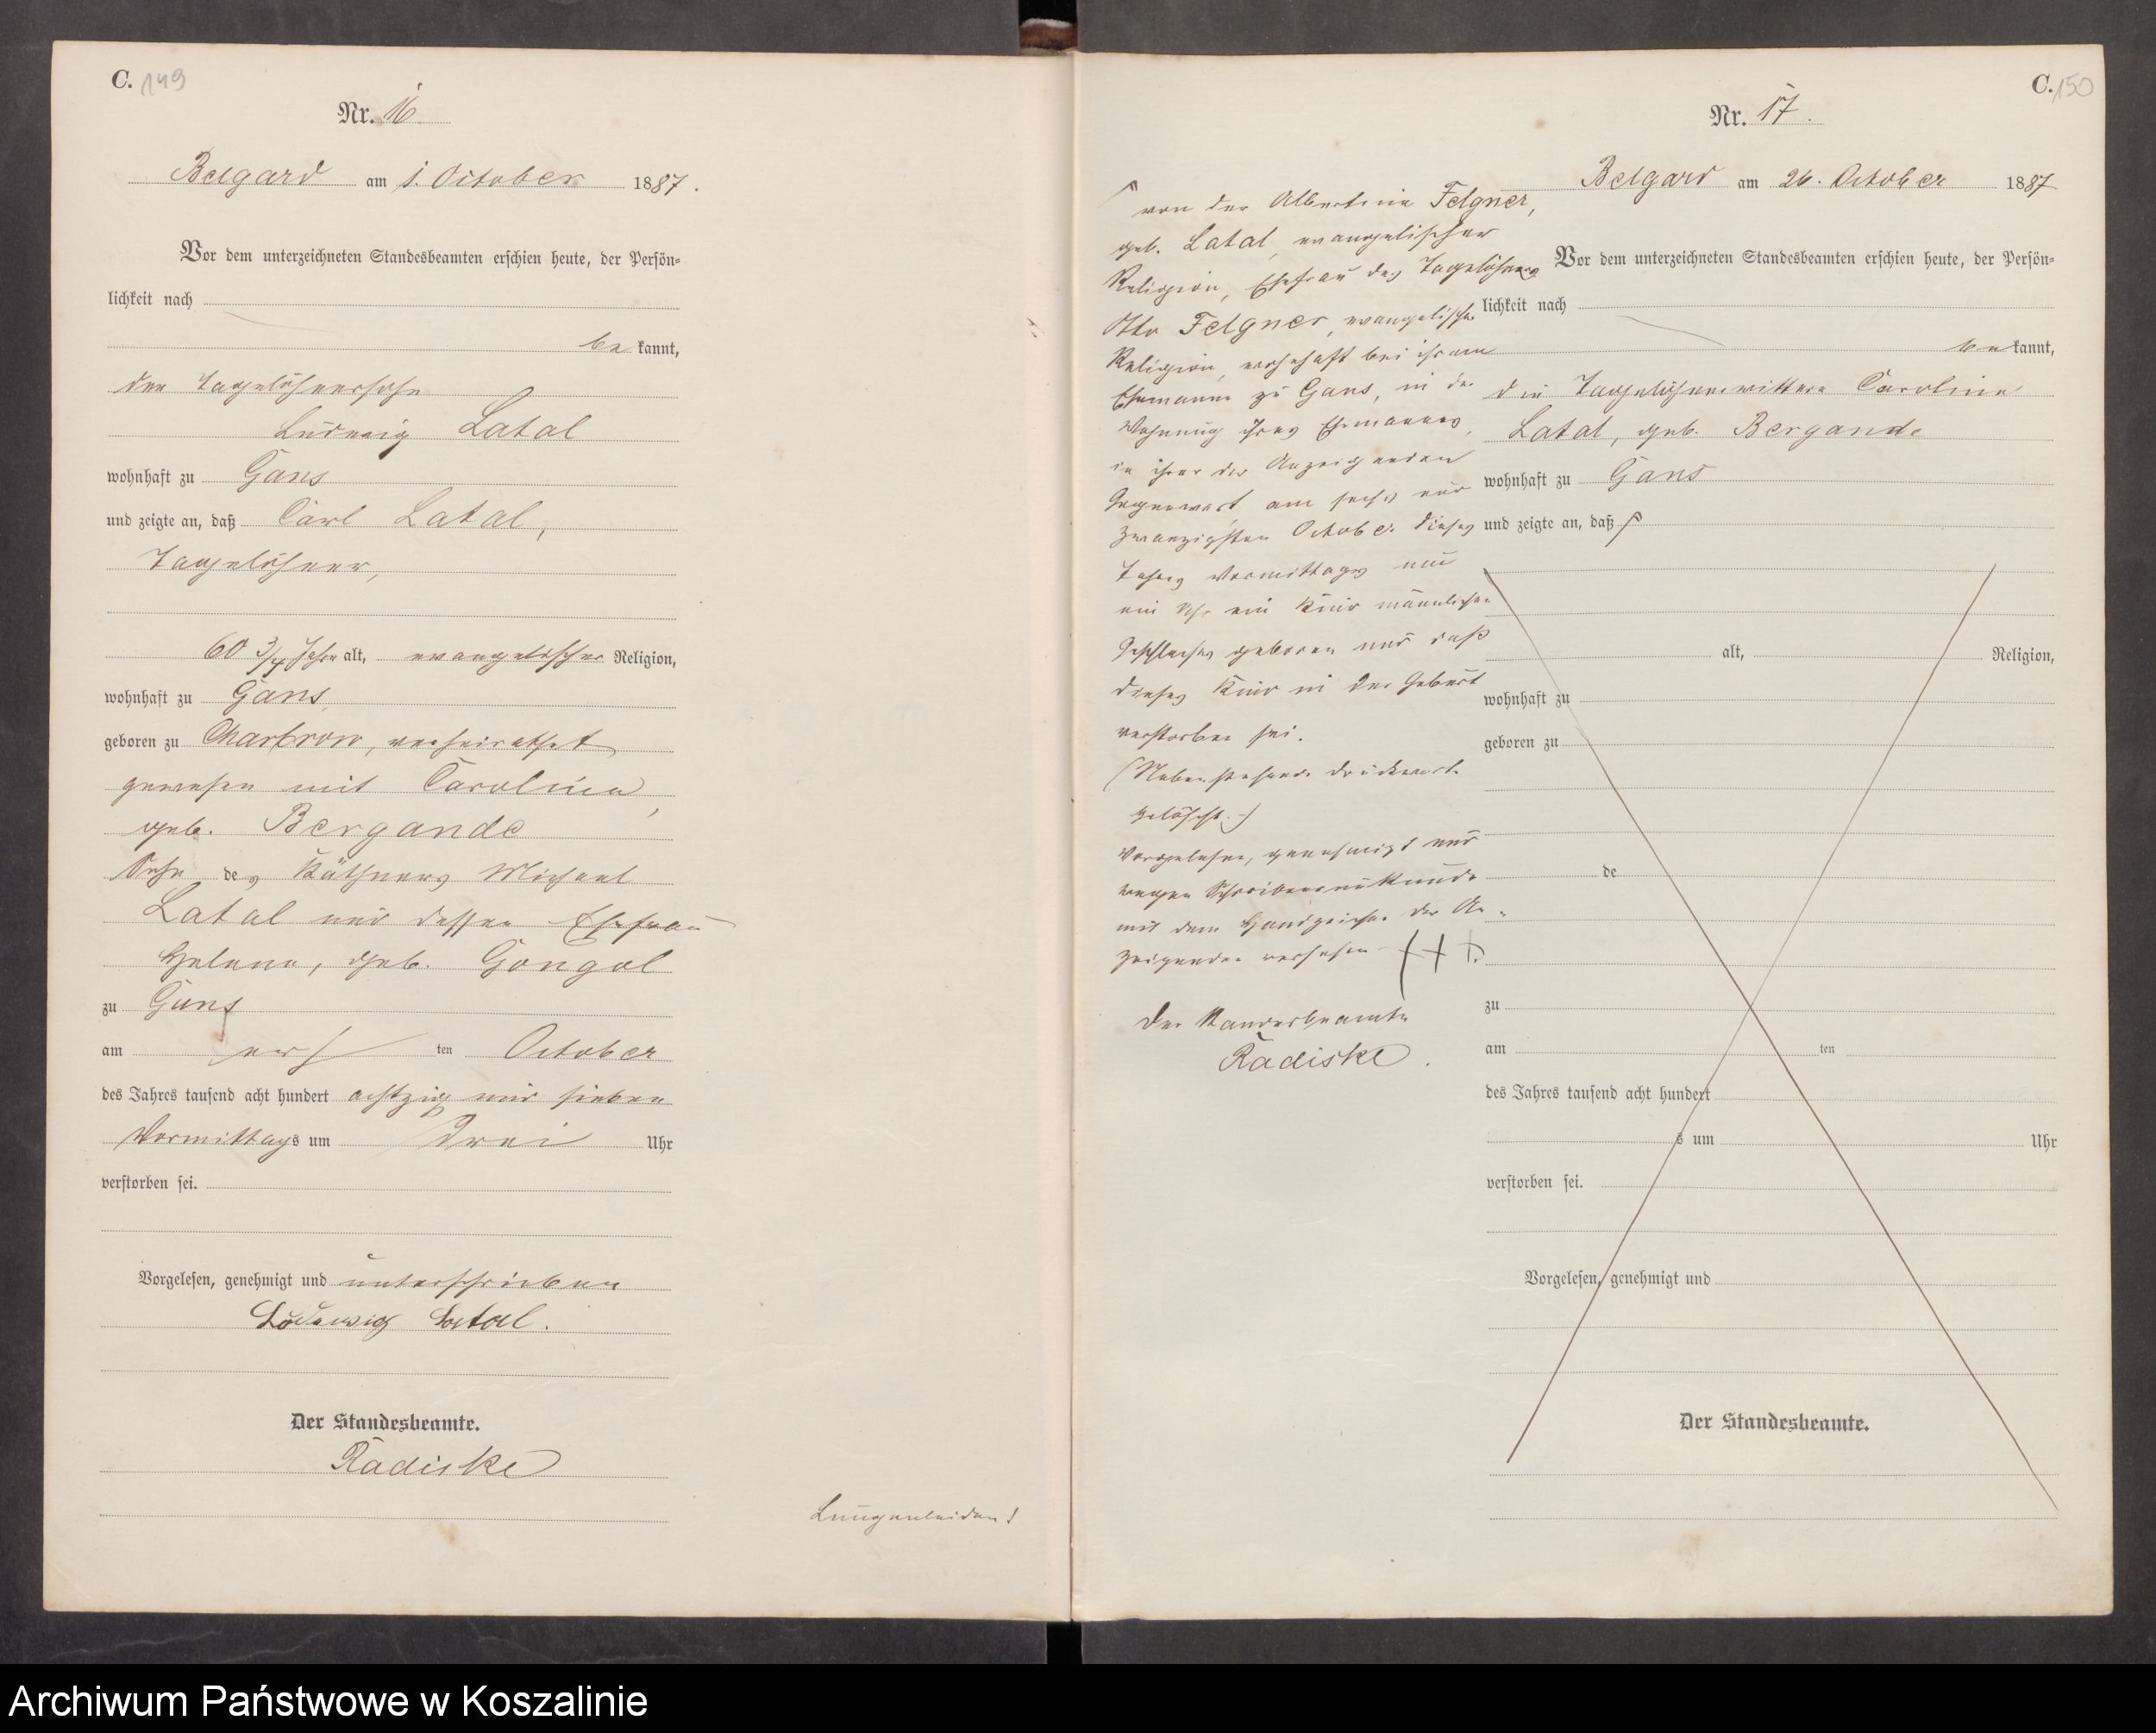 C. 149
Nr. 16
Belgard am 1. October 1887.
Vor dem unterzeichneten Standesbeamten erschien heute, der Persön-
lichkeit nach
be kannt,
der Tagelöhnersohn
Ludwig Latal
wohnhaft zu Gans
und zeigte an, daß Carl Latal,
Tagelöhner,
60 3/4 Jahre alt, evangelischer Religion,
wohnhaft zu Gans,
geboren zu Charbrow, verheirathet
gewesen mit Caroline,
geb. Bergande
Sohn des Käthners Michael
Latal und dessen Ehefrau
Helene, geb. Gongol
zu Gans
am ersten October
des Jahres tausend acht hundert achtzig und sieben
Vormittags um drei Uhr
verstorben sei.
Vorgelesen, genehmigt und unterschrieben
Ludewig Latal.
Der Standesbeamte.
Radiske
Lungenleiden!
C. 150
Nr. 17.
Belgard am 26. October 1887
Vor dem unterzeichneten Standesbeamten erschien heute, der Persön-
lichkeit nach
be kannt,
die Tagelöhnerwittwe Caroline
Latal, geb. Bergande
wohnhaft zu Gans
und zeigte an, daß
von der Albertine Felgner,
geb. Latal, evangelischer
Religion, Ehefrau des Tagelöhners
Otto Felgner, evangelischer
Religion, wohnhaft bei ihrem
Ehemanne zu Gans, in der
Wohnung ihres Ehemannes,
in ihrer der Anzeigenden
Gegenwart am sechs und
zwanzigsten October dieses
Jahres Vormittags um
ein Uhr ein Kind männlichen
Geschlechts geboren und daß
dieses Kind in der Geburt
verstorben sei.
(Nebenstehende Druckworte
gelöscht.)
Vorgelesen, genehmigt und
wegen Schreibensunkunde
mit dem Handzeichen der An-
zeigenden versehen +++
Der Standesbeamte
Radiske.
alt, Religion,
wohnhaft zu
geboren zu
de
zu
am ten
des Jahres tausend acht hundert
s um Uhr
verstorben sei.
Vorgelesen, genehmigt und
Der Standesbeamte.
Archiwum Państwowe w Koszalinie